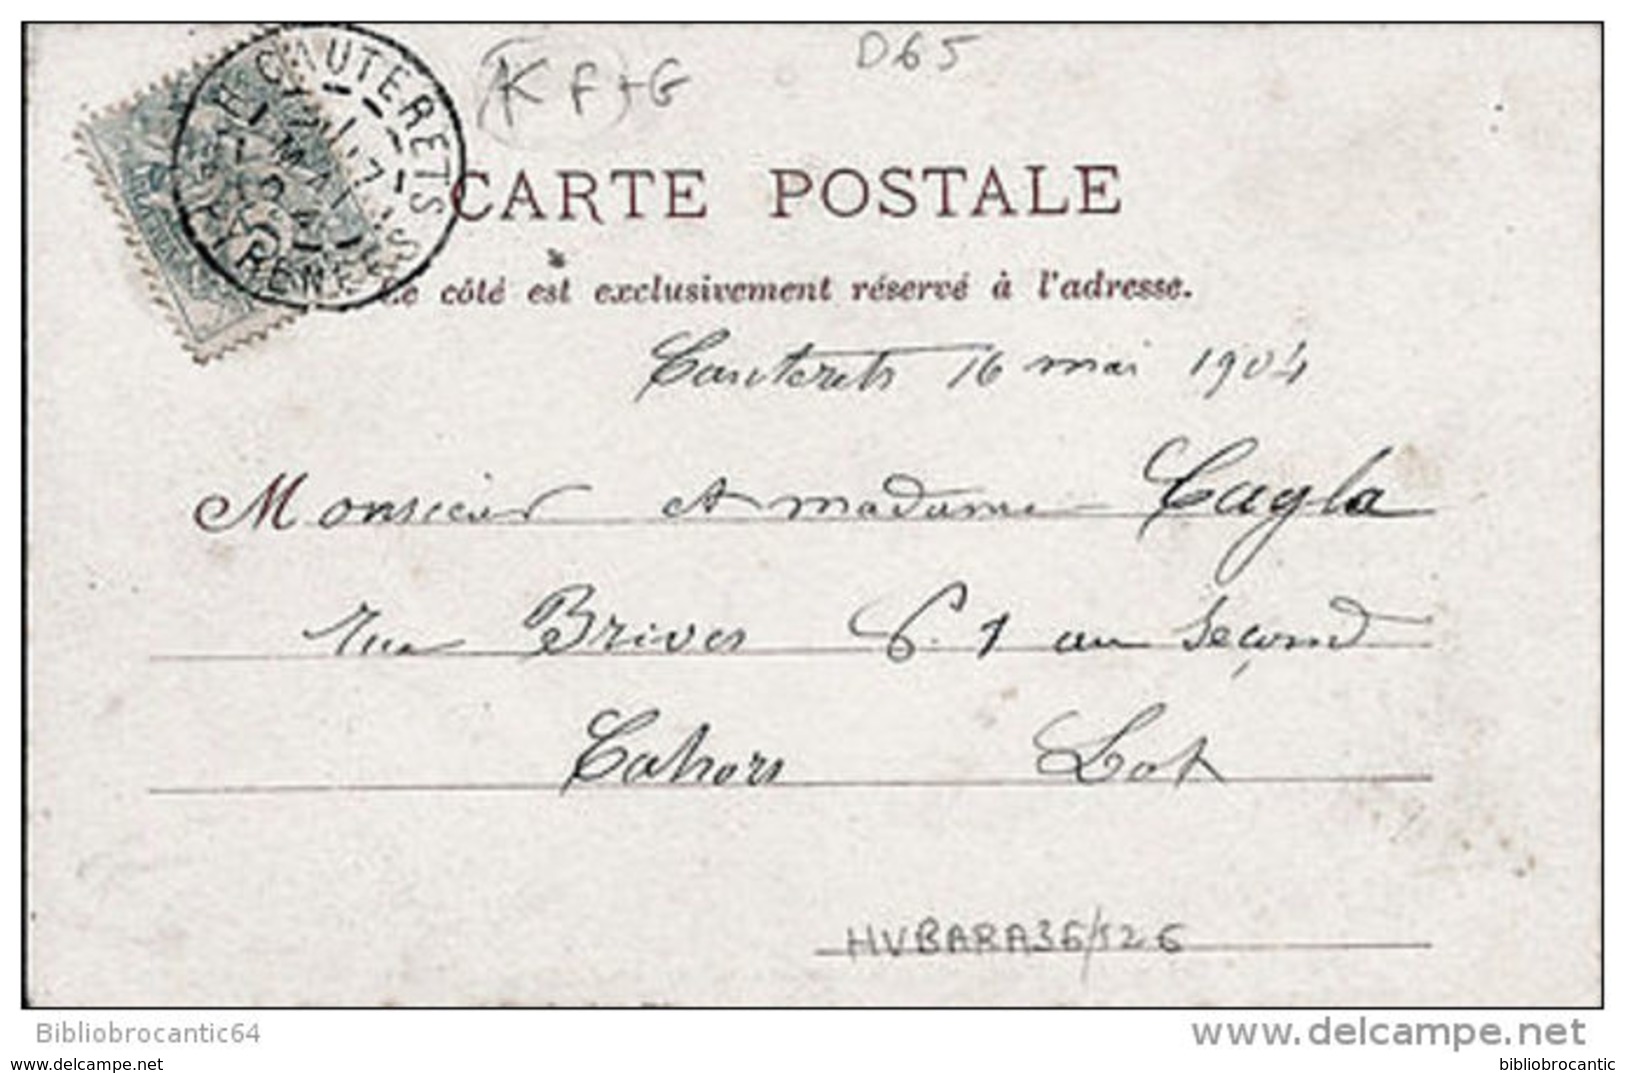 D65
K F+G
CAUTERETS
Htes PYRENEES
CARTE POSTALE
Ce côté est exclusivement réservé à l'adresse.
Cauterets 16 mai 1904
Monsieur et madame Cayla
rue Brives 6. 1 au second
Cahors Lot
HVBARA36/526
Bibliobrocantic64
www.delcampe.net
www.delcampe.net
bibliobrocantic